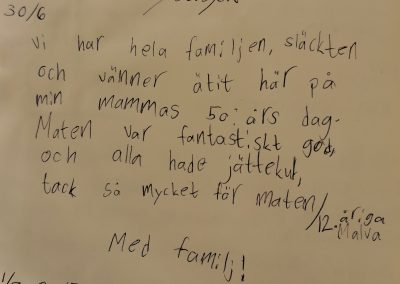 30/6
Vi har hela familjen, släckten
och vänner ätit här på
min mammas 50:års dag.
Maten var fantastiskt god,
och alla hade jättekul,
tack så mycket för maten
/12.åriga
Malva
Med familj!